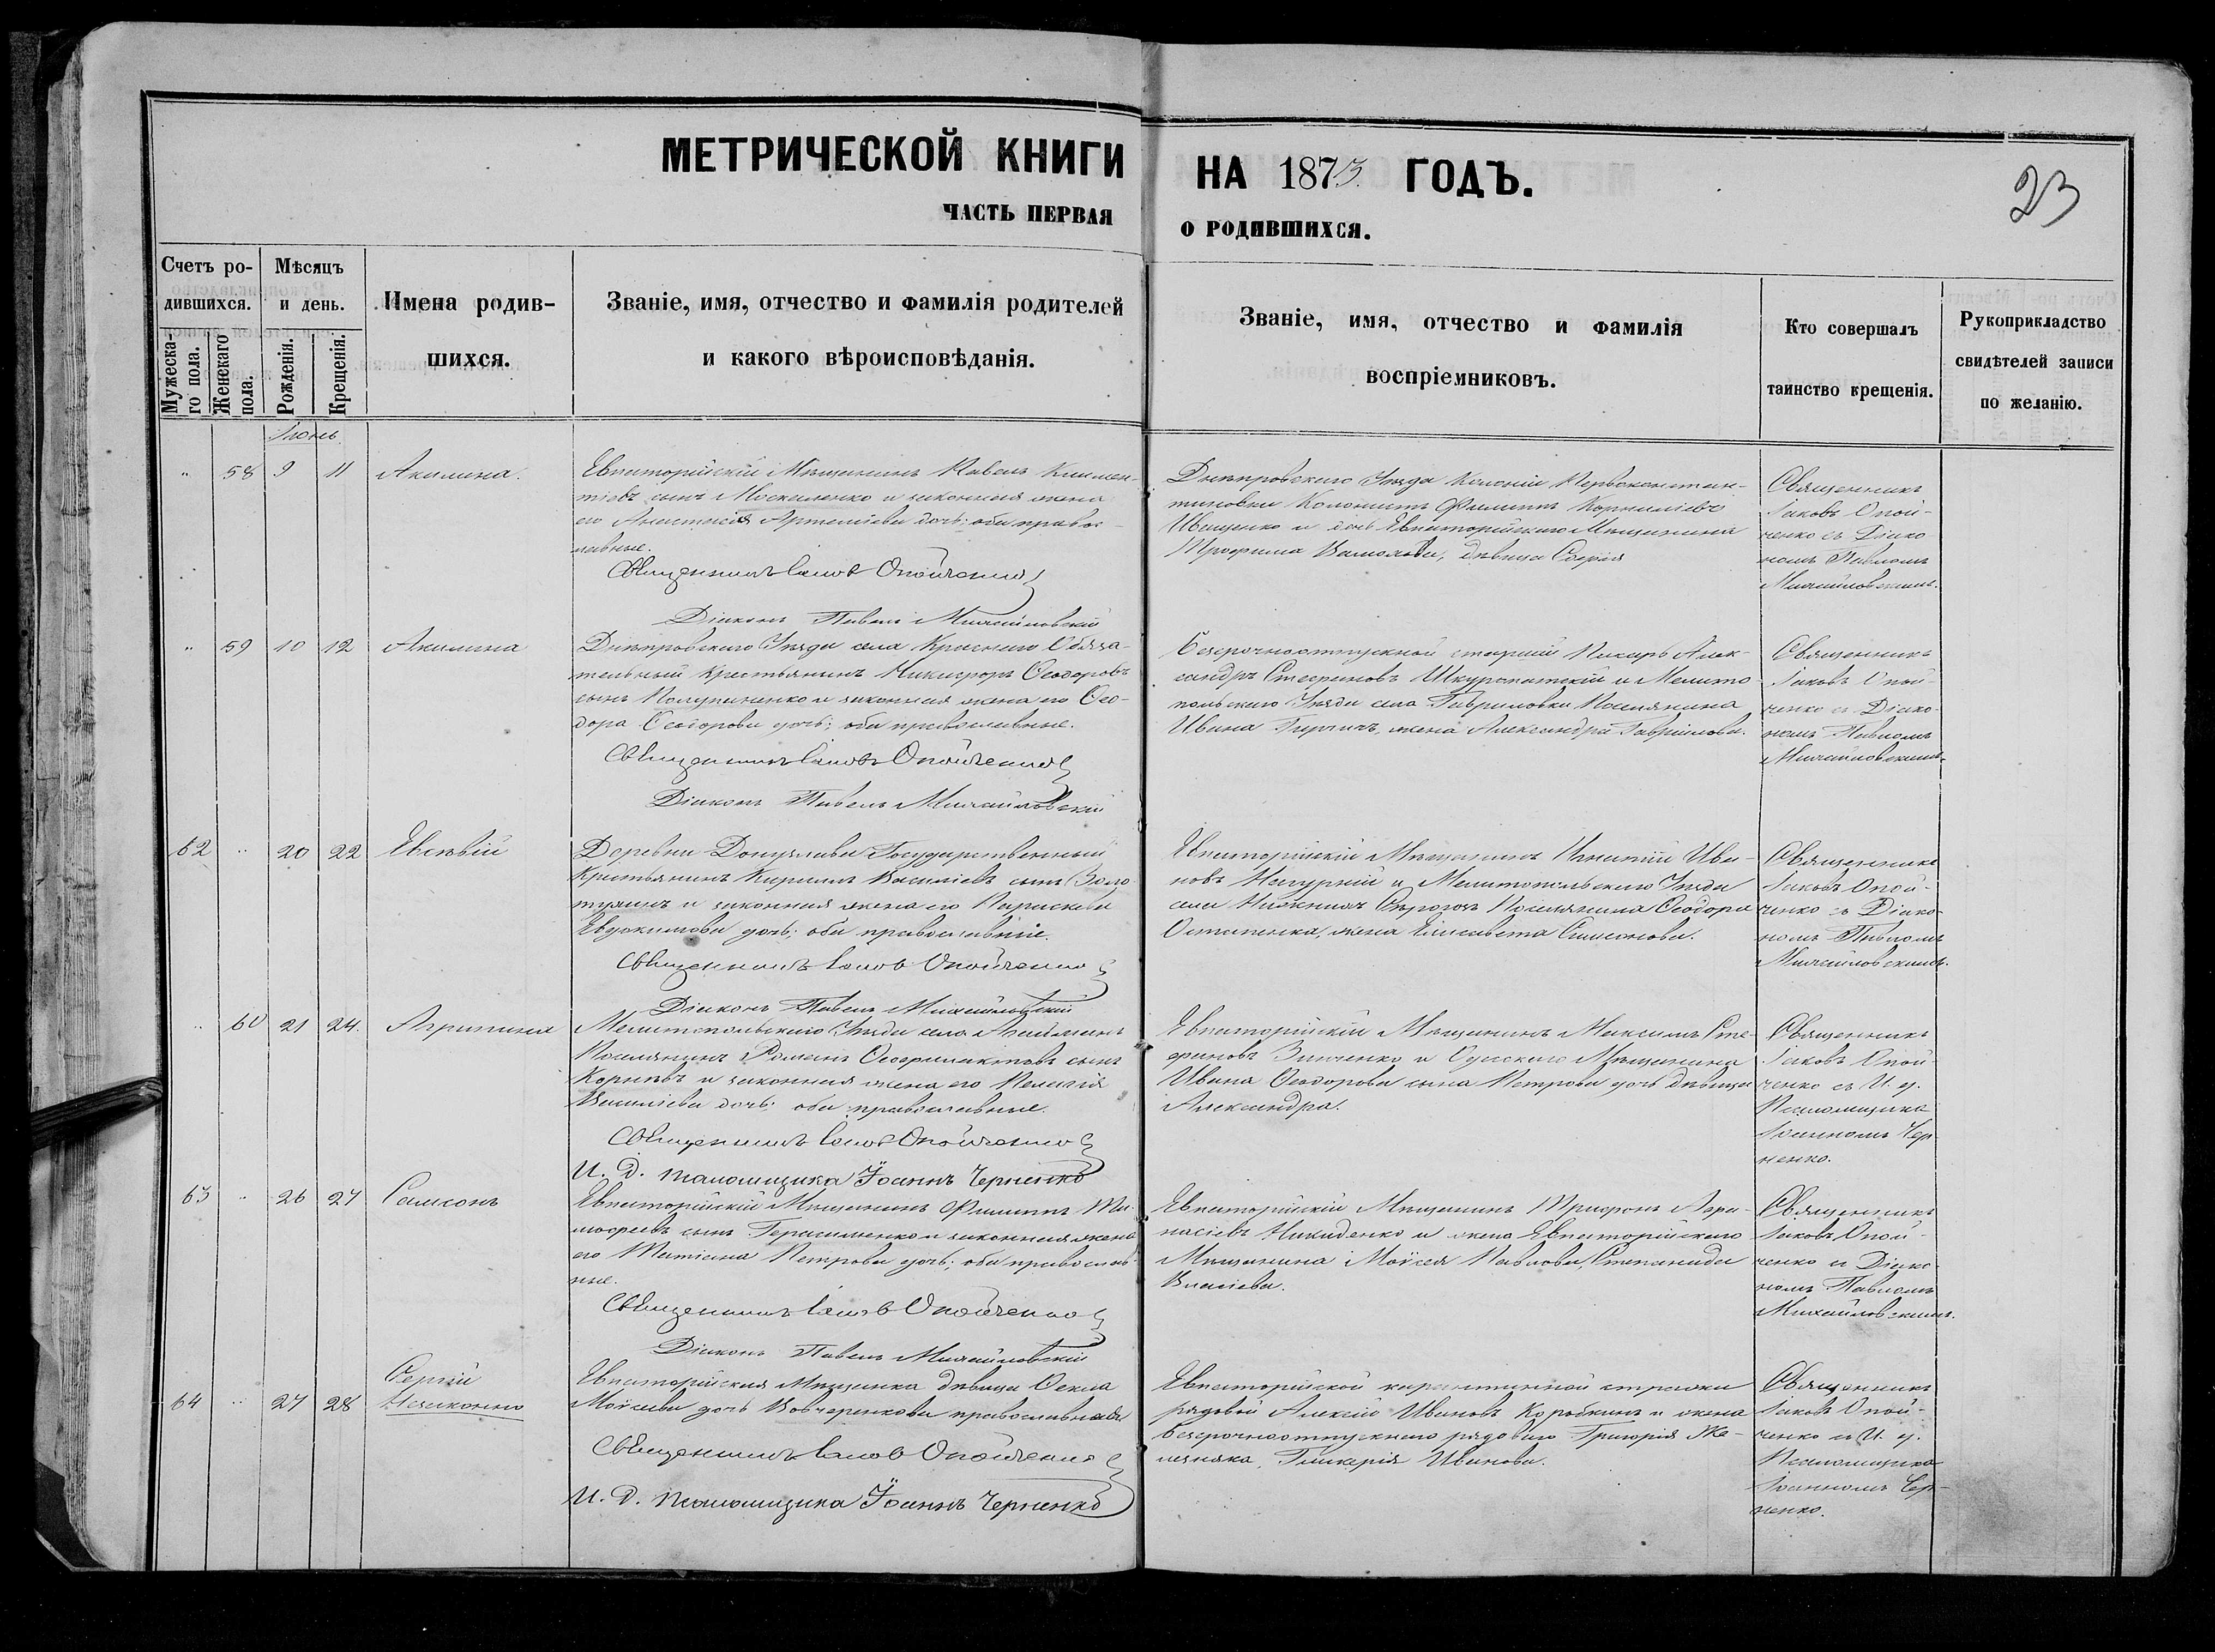 МЕТРИЧЕСКОЙ КНИГИ НА 1873 ГОДЪ.
23
ЧАСТЬ ПЕРВАЯ О РОДИВШИХСЯ.
Счетъ ро-
дившихся.
Мужеска-
го пола.
Женскаго
пола.
Мѣсяцъ
и день.
Рожденія.
Крещенія.
Имена родив-
шихся.
Званіе, имя, отчество и фамилія родителей
и какого вѣроисповѣданія.
Званіе, имя, отчество и фамилія
воспріемниковъ.
Кто совершалъ
таинство крещенія.
Рукоприкладство
свидѣтелей записи
по желанію.
Іюнь
" 58 9 11 Акилина.
Евпаторійскій Мѣщанинъ Павелъ Климен-
тіевъ сынъ Москаленко и законная жена
его Анастасія Артеміева дочь; оба правос-
лавные.
Священникъ Іаковъ Опойченко
Діаконъ Павелъ Михайловскій
Днѣпровскаго Уѣзда Колоніи Первоконстан-
тиновки Колонистъ Филиппъ Корниліевъ
Иващенко и дочь Евпаторійскаго Мѣщанина
Трофима, дѣвица Софія
Священникъ
Іаковъ Опой-
ченко съ Діако
номъ Павломъ
Михайловскимъ.
" 59 10 12 Акилина
Днѣпровскаго Уѣзда села Краснаго Обяза-
тельный Крестьянинъ Никифоръ Ѳеодоровъ
сынъ и законная жена его Ѳео-
дора Ѳеодорова дочь; оба православные.
Священникъ Іаковъ Опойченко
Діаконъ Павелъ Михайловскій
Безсрочноотпускной старшій Писарь Алек-
сандръ Стефановъ Шкуропатскій и Мелито-
польскаго Уѣзда села Гавриловки Поселянина
Ивана, жена Александра Гаврилова.
Священникъ
Іаковъ Опой-
ченко съ Діако-
номъ Павломъ
Михайловскимъ.
62 " 20 22 Евсевій
Деревни Государственный
Крестьянинъ Кириллъ Василіевъ сынъ Золо-
тухинъ и законная жена его Параскева
Евдокимова дочь; оба православные.
Священникъ Іаковъ Опойченко
Діаконъ Павелъ Михайловскій
Евпаторійскій Мѣщанинъ Игнатій Ива-
новъ Нагурній и Мелитопольскаго Уѣзда
села Нижнихъ Сѣрогозъ Поселянина Ѳеодора
Остапенка, жена Елисавета Симеонова.
Священникъ
Іаковъ Опой-
ченко съ Діако-
номъ Павломъ
Михайловскимъ.
" 60 21 24. Агрипина
Мелитопольскаго Уѣзда села
Поселянинъ Романъ Ѳеофилактовъ сынъ
Корнѣвъ и законная жена его Пелагія
Василіева дочь; оба православные.
Священникъ Іаковъ Опойченко
И. д. псаломщика Іоаннъ Черненко
Евпаторійскій Мѣщанинъ Максимъ Сте-
фановъ Зинченко и Одесскаго Мѣщанина
Ивана Ѳеодорова сына Петрова дочь дѣвица
Александра.
Священникъ
Іаковъ Опой-
ченко съ И. д.
Псаломщика
Іоанномъ Чер-
ненко.
63 " 26 27 Сампсонъ
Евпаторійскій Мѣщанинъ Филиппъ Ти-
мофеевъ сынъ Герасименко и законная жена
его Татіана Петрова дочь; оба православ-
ные.
Священникъ Іаковъ Опойченко
Діаконъ Павелъ Михайловскій
Евпаторійскій Мѣщанинъ Трифонъ Афа-
насіевъ Никиденко и жена Евпаторійскаго
Мѣщанина Моѵсея Павлова, Степанида
Власіева.
Священникъ
Іаковъ Опой-
ченко съ Діако-
номъ Павломъ
Михайловскимъ.
64 " 27 28 Сергій
Незаконно
Евпаторійская Мѣщанка дѣвица Ѳекла
Моисеева дочь Вовчеренкова православная
Священникъ Іаковъ Опойченко
И. д. псаломщика Іоаннъ Черненко
Евпаторійской карантинной стражи
рядовой Алексій Ивановъ Коробкинъ и жена
безсрочноотпускнаго рядоваго Григорія Же-
лезняка, Гликерія Иванова.
Священникъ
Іаковъ Опой-
ченко съ И. д.
Псаломщика
Іоанномъ Чер-
ненко.